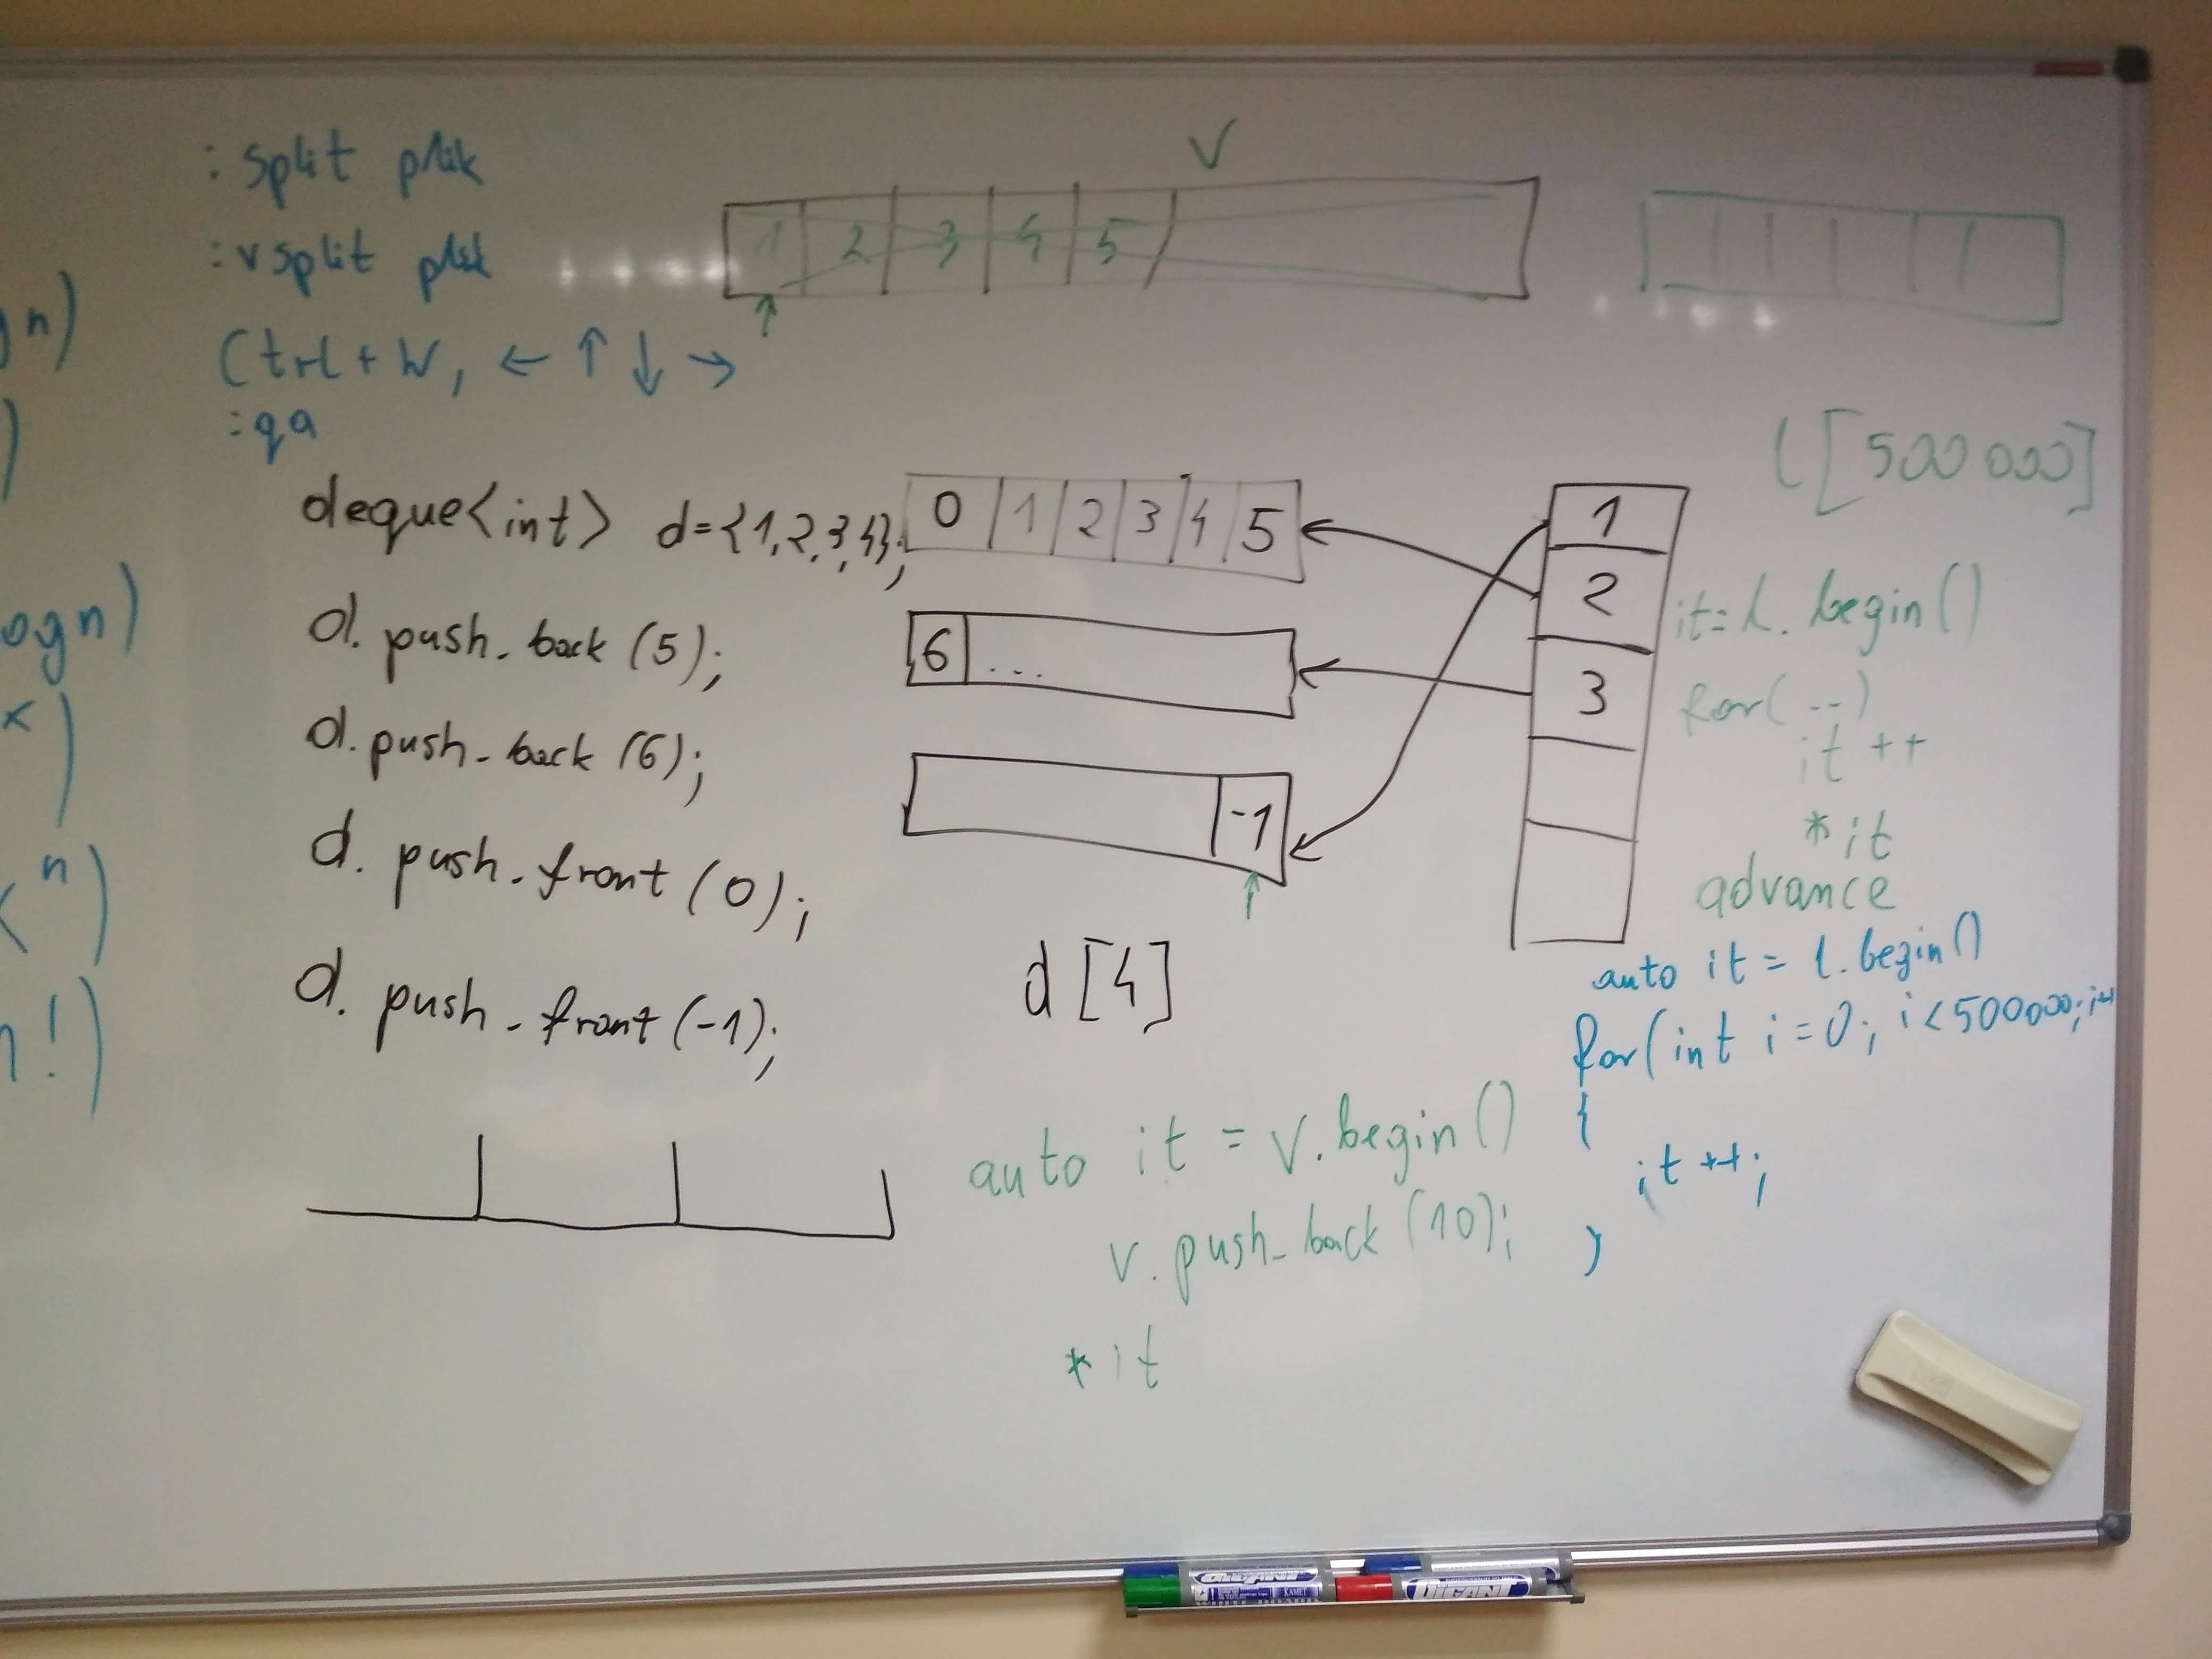 : split plik
: vsplit plik
Ctrl + W, ← ↑ ↓ →
: qa
gn)
)
ogn)
x)
n)
n!)
V
1 2 3 4 5
↑
deque<int> d={1,2,3,4};
d. push_back (5);
d. push_back (6);
d. push_front (0);
d. push_front (-1);
0 1 2 3 4 5
6 ...
-1
↑
d [4]
1
2
3
l [500 000]
it = l. begin ()
for( ... )
it ++
* it
advance
auto it = l. begin ()
for (int i = 0; i < 500000; i++
{
it ++;
}
auto it = v. begin ()
v. push_back (10);
* it
KAMET